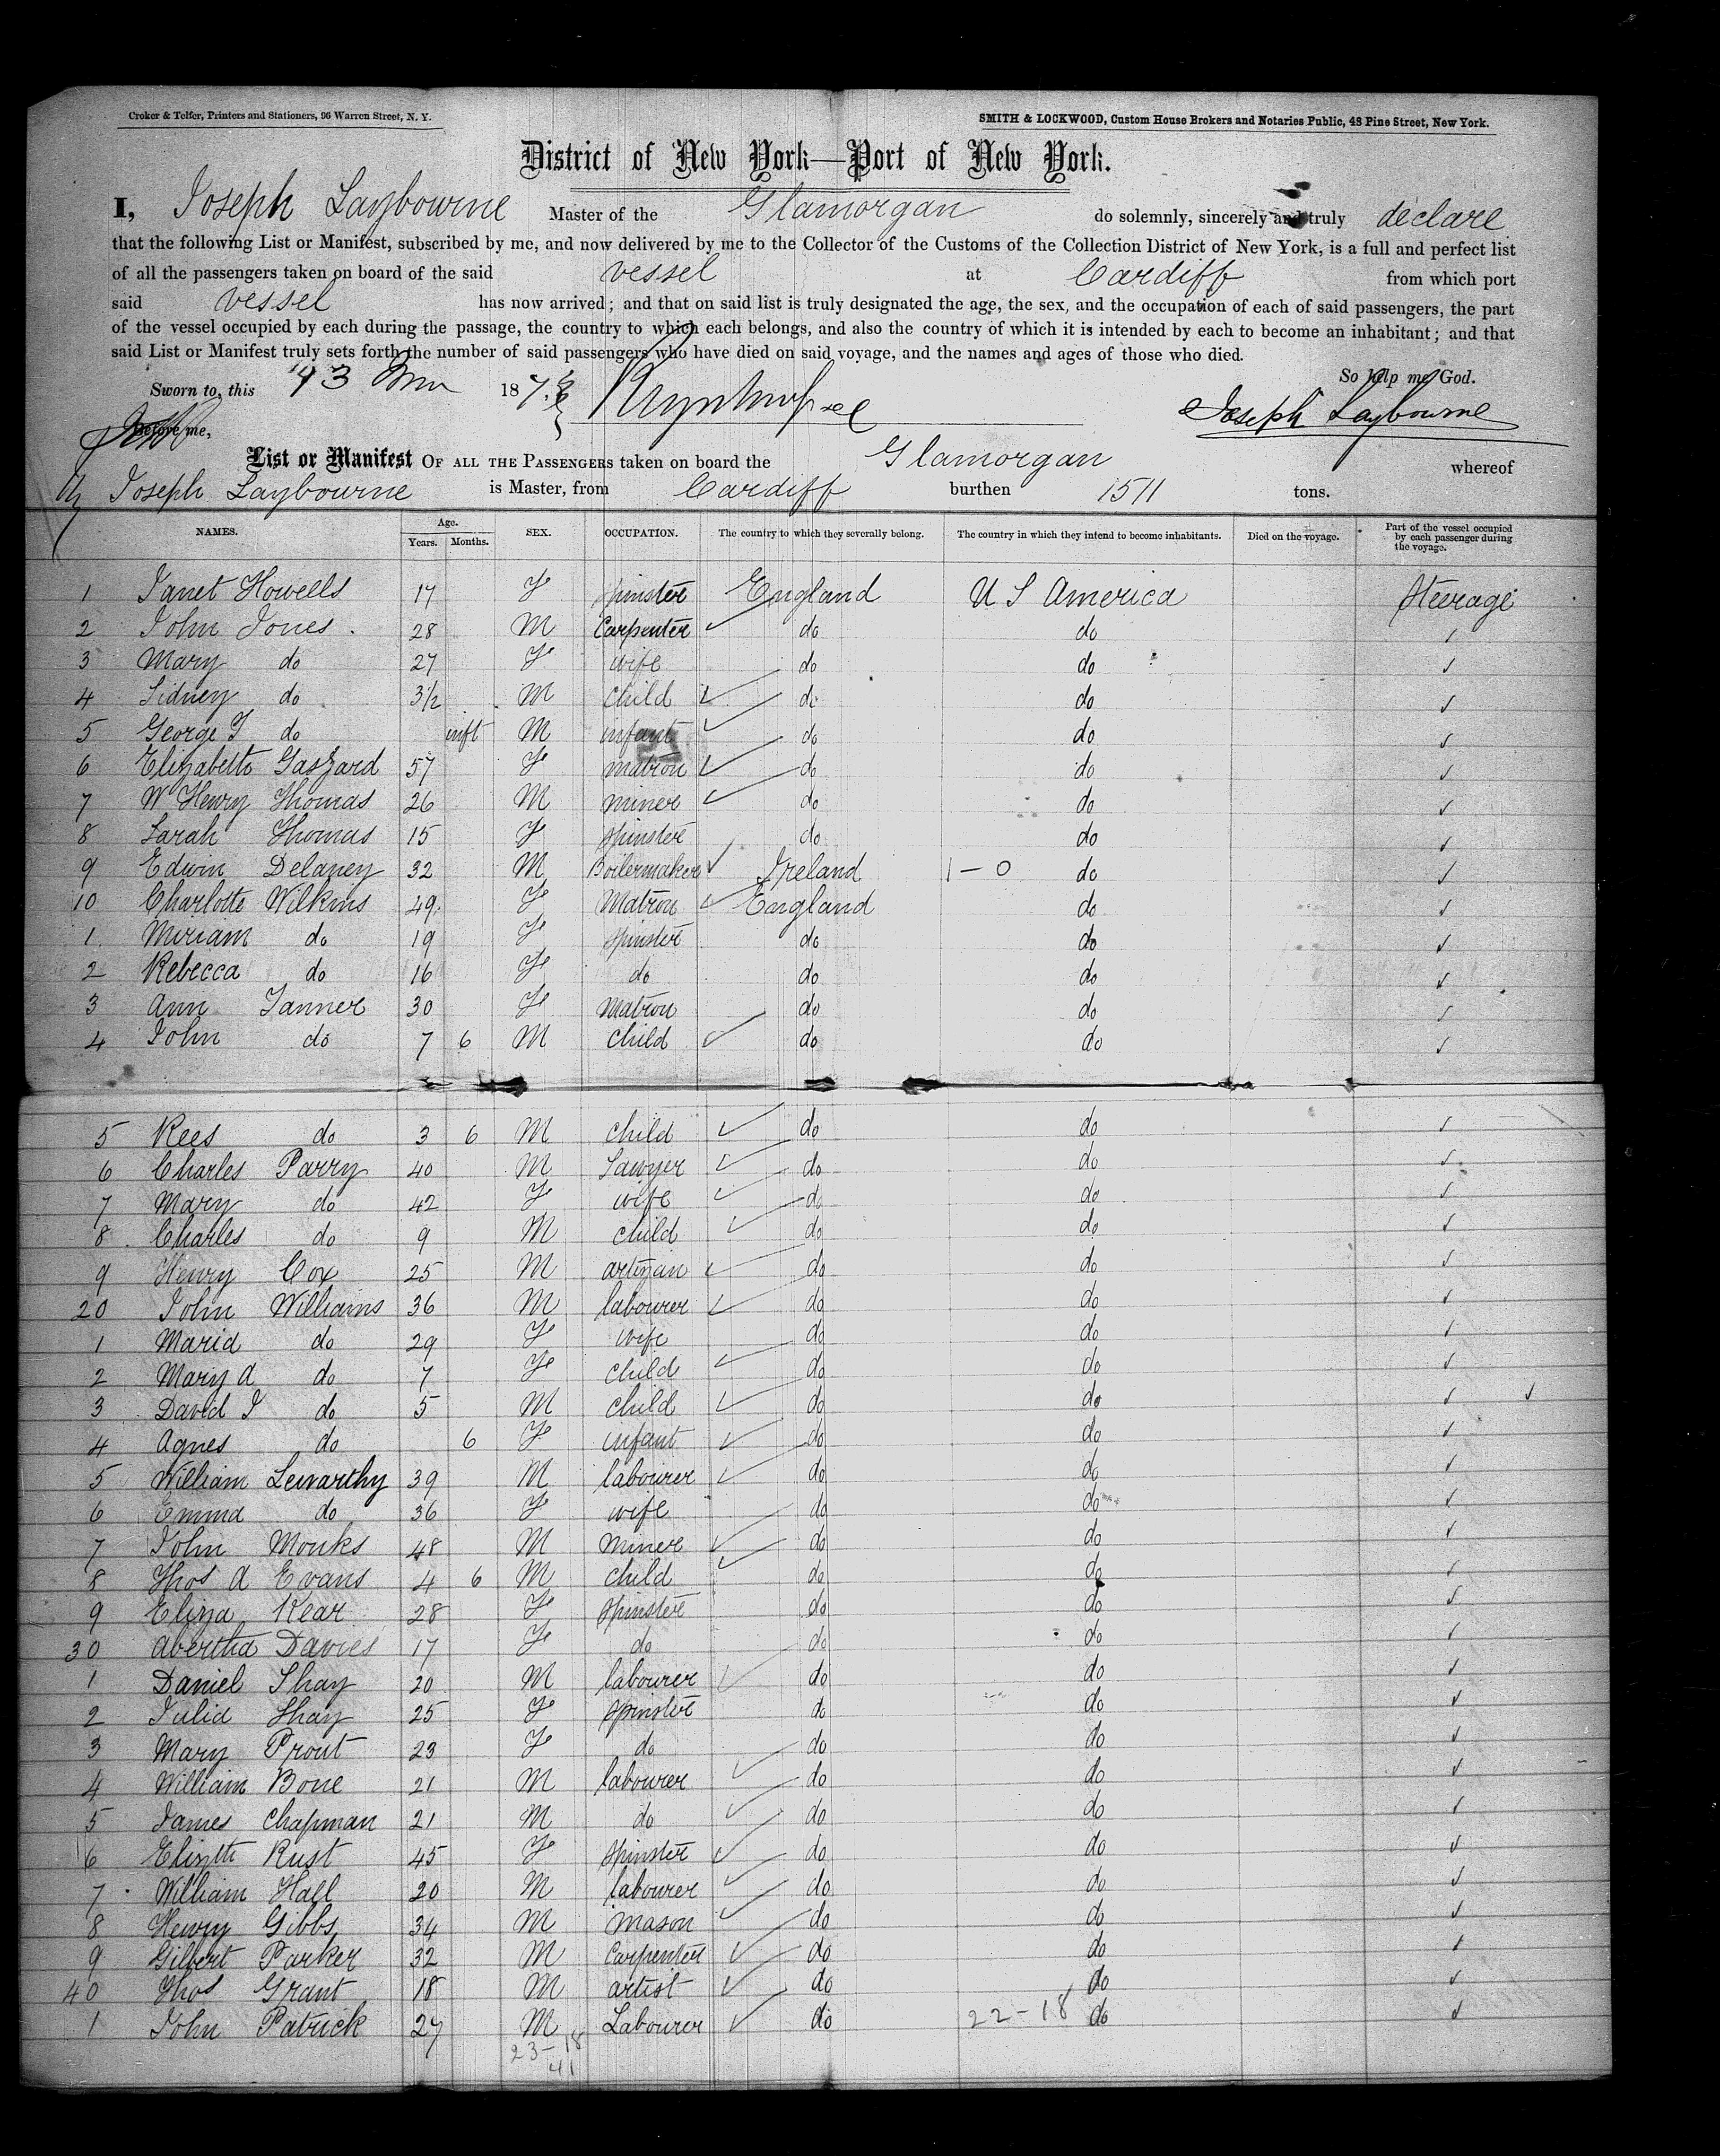 Croker & Telfer, Printers and Stationers, 96 Warren Street, N. Y.
SMITH & LOCKWOOD, Custom House Brokers and Notaries Public, 48 Pine Street, New York.
District of New York—Port of New York.
I, Joseph Laybourne Master of the Glamorgan do solemnly, sincerely and truly declare
that the following List or Manifest, subscribed by me, and now delivered by me to the Collector of the Customs of the Collection District of New York, is a full and perfect list
of all the passengers taken on board of the said vessel at Cardiff from which port
said vessel has now arrived; and that on said list is truly designated the age, the sex, and the occupation of each of said passengers, the part
of the vessel occupied by each during the passage, the country to which each belongs, and also the country of which it is intended by each to become an inhabitant; and that
said List or Manifest truly sets forth the number of said passengers who have died on said voyage, and the names and ages of those who died.
So help me God.
Sworn to, this 187
Joseph Laybourne
Before me,
List or Manifest OF ALL THE PASSENGERS taken on board the Glamorgan whereof
Joseph Laybourne is Master, from Cardiff burthen 1511 tons.
NAMES. Age. Years. Months. SEX. OCCUPATION. The country to which they severally belong. The country in which they intend to become inhabitants. Died on the voyage. Part of the vessel occupied by each passenger during the voyage.
1 Janet Howells 17 F spinster England U S America Steerage
2 John Jones 28 M Carpenter do do
3 Mary do 27 F wife do do
4 Sidney do 3½ M child do do
5 George T do inft M infant do do
6 Elizabeth Gaszard 57 F matron do do
7 W Henry Thomas 26 M miner do do
8 Sarah Thomas 15 F spinster do do
9 Edwin Delaney 32 M Boilermaker Ireland 1 - 0 do
10 Charlotte Wilkins 49 F Matron England do
1 Miriam do 19 F spinster do do
2 Rebecca do 16 F do do do
3 Ann Tanner 30 F Matron do do
4 John do 7 6 M child do do
5 Rees do 3 6 M child do do
6 Charles Parry 40 M Sawyer do do
7 Mary do 42 F wife do do
8 Charles do 9 M child do do
9 Henry Cox 25 M artizan do do
20 John Williams 36 M labourer do do
1 Maria do 29 F wife do do
2 Mary A do 7 F child do do
3 David J do 5 M child do do
4 Agnes do 6 F infant do do
5 William Lewarthy 39 M labourer do do
6 Emma do 36 F wife do do
7 John Monks 48 M miner do do
8 Thos A Evans 4 6 M child do do
9 Eliza Kear 28 F spinster do do
30 Abertha Davies 17 F do do do
1 Daniel Shay 20 M labourer do do
2 Julia Shay 25 F spinster do do
3 Mary Prout 23 F do do do
4 William Bone 21 M labourer do do
5 James Chapman 21 M do do do
6 Elizth Rust 45 F spinster do do
7 William Hall 20 M labourer do do
8 Henry Gibbs 34 M mason do do
9 Gilbert Parker 32 M Carpenter do do
40 Thos Grant 18 M artist do do
1 John Patrick 27 M Labourer do 22-18 do
23-18
41